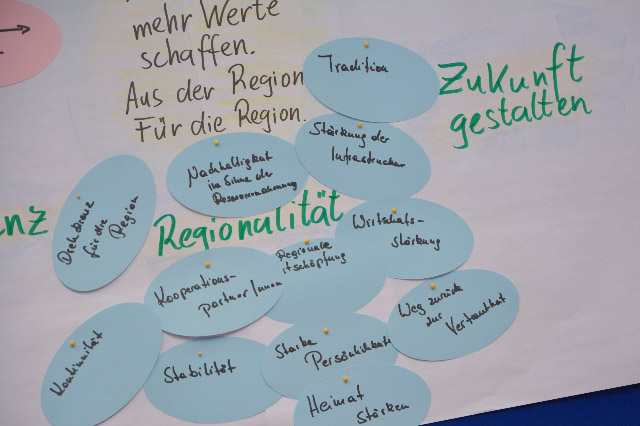 mehr Werte
schaffen.
Aus der Region
Für die Region.
Zukunft
gestalten
Tradition
Stärkung der
Nachhaltigkeit
im Sinne der
Ressourcenschonung
für die
Region
nz
Regionalität
Wirtschafts-
stärkung
Regionale
tschöpfung
Kooperations-
partner/innen
Weg zurück
zur
Vertrautheit
Kontinuität
Stabilität
Starke
Persönlichkeit
Heimat
stärken